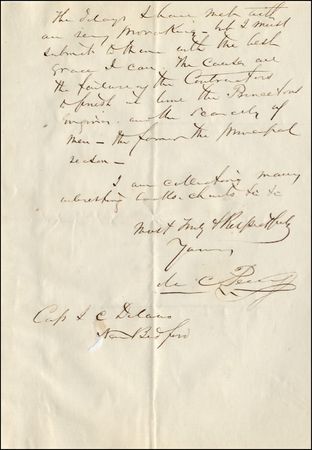 The delays I have met with
are very provoking - but I must
submit to them with the best
grace I can. The causes are
the failure of the Contractors
to finish in time the Princetons
engines and the scarcity of
men - the former the principal
reason -
I am collecting many
interesting books charts &c &c
Most truly & Respectfully
Yours,
M C Perry
Cap
New Bedford